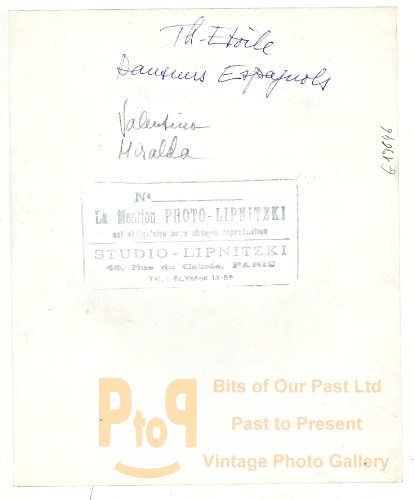 Th-Etoile
Danseurs Espagnols
Valentino
Miralda
G13646
No
La Mention PHOTO-LIPNITZKI
est obligatoire sous chaque reproduction
STUDIO-LIPNITZKI
49, Rue du Colisée, PARIS
TÉL.: ELYSées 13-55
PtoP
Bits of Our Past Ltd
Past to Present
Vintage Photo Gallery